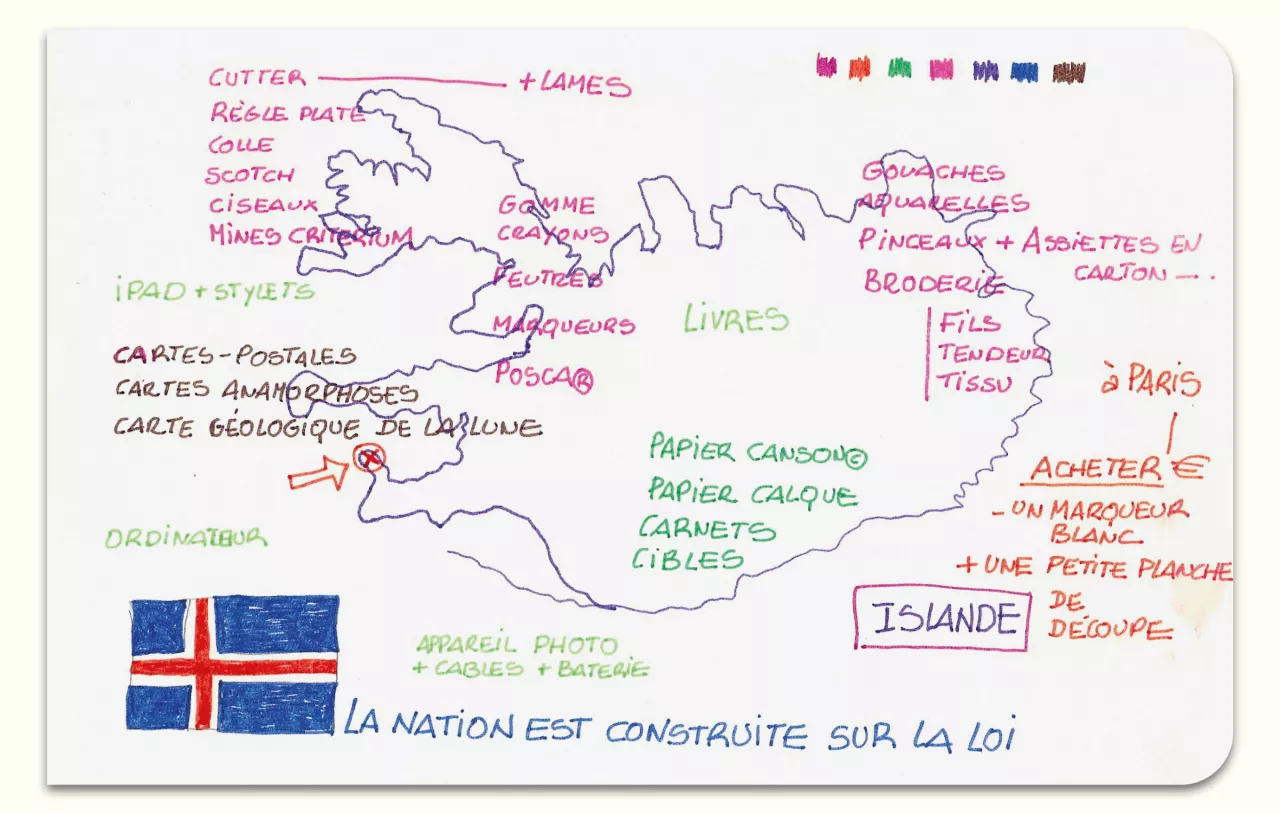 CUTTER + LAMES
RÈGLE PLATE
COLLE
SCOTCH
CISEAUX
MINES CRITERIUM
GOMME
CRAYONS
FEUTRES
MARQUEURS
POSCA®
GOUACHES
AQUARELLES
PINCEAUX + ASSIETTES EN
CARTON - . .
BRODERIE
FILS
TENDEUR
TISSU
iPAD + STYLETS
LIVRES
CARTES-POSTALES
CARTES ANAMORPHOSES
CARTE GÉOLOGIQUE DE LA LUNE
à PARIS
ACHETER €
- UN MARQUEUR
BLANC
+ UNE PETITE PLANCHE
DE
DÉCOUPE
PAPIER CANSON©
PAPIER CALQUE
CARNETS
CIBLES
ORDINATEUR
ISLANDE
APPAREIL PHOTO
+ CABLES + BATERIE
LA NATION EST CONSTRUITE SUR LA LOI